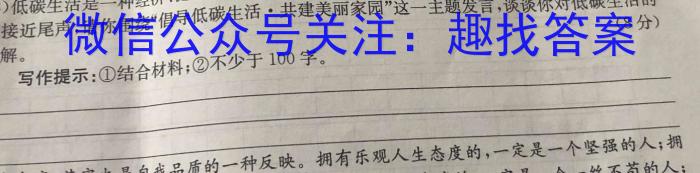 低碳生活是一种经济
倡导低碳生活·共建美丽家园”这一主题发言，谈谈你对低碳生活的
接近尾声
解。
分）
微信公众号关注：趣找答案
写作提示：①结合材料；②不少于100字。
品质的一种反映。拥有乐观人生态度的，一定是一个坚强的人；拥
一定是一个一丝不苟的人；